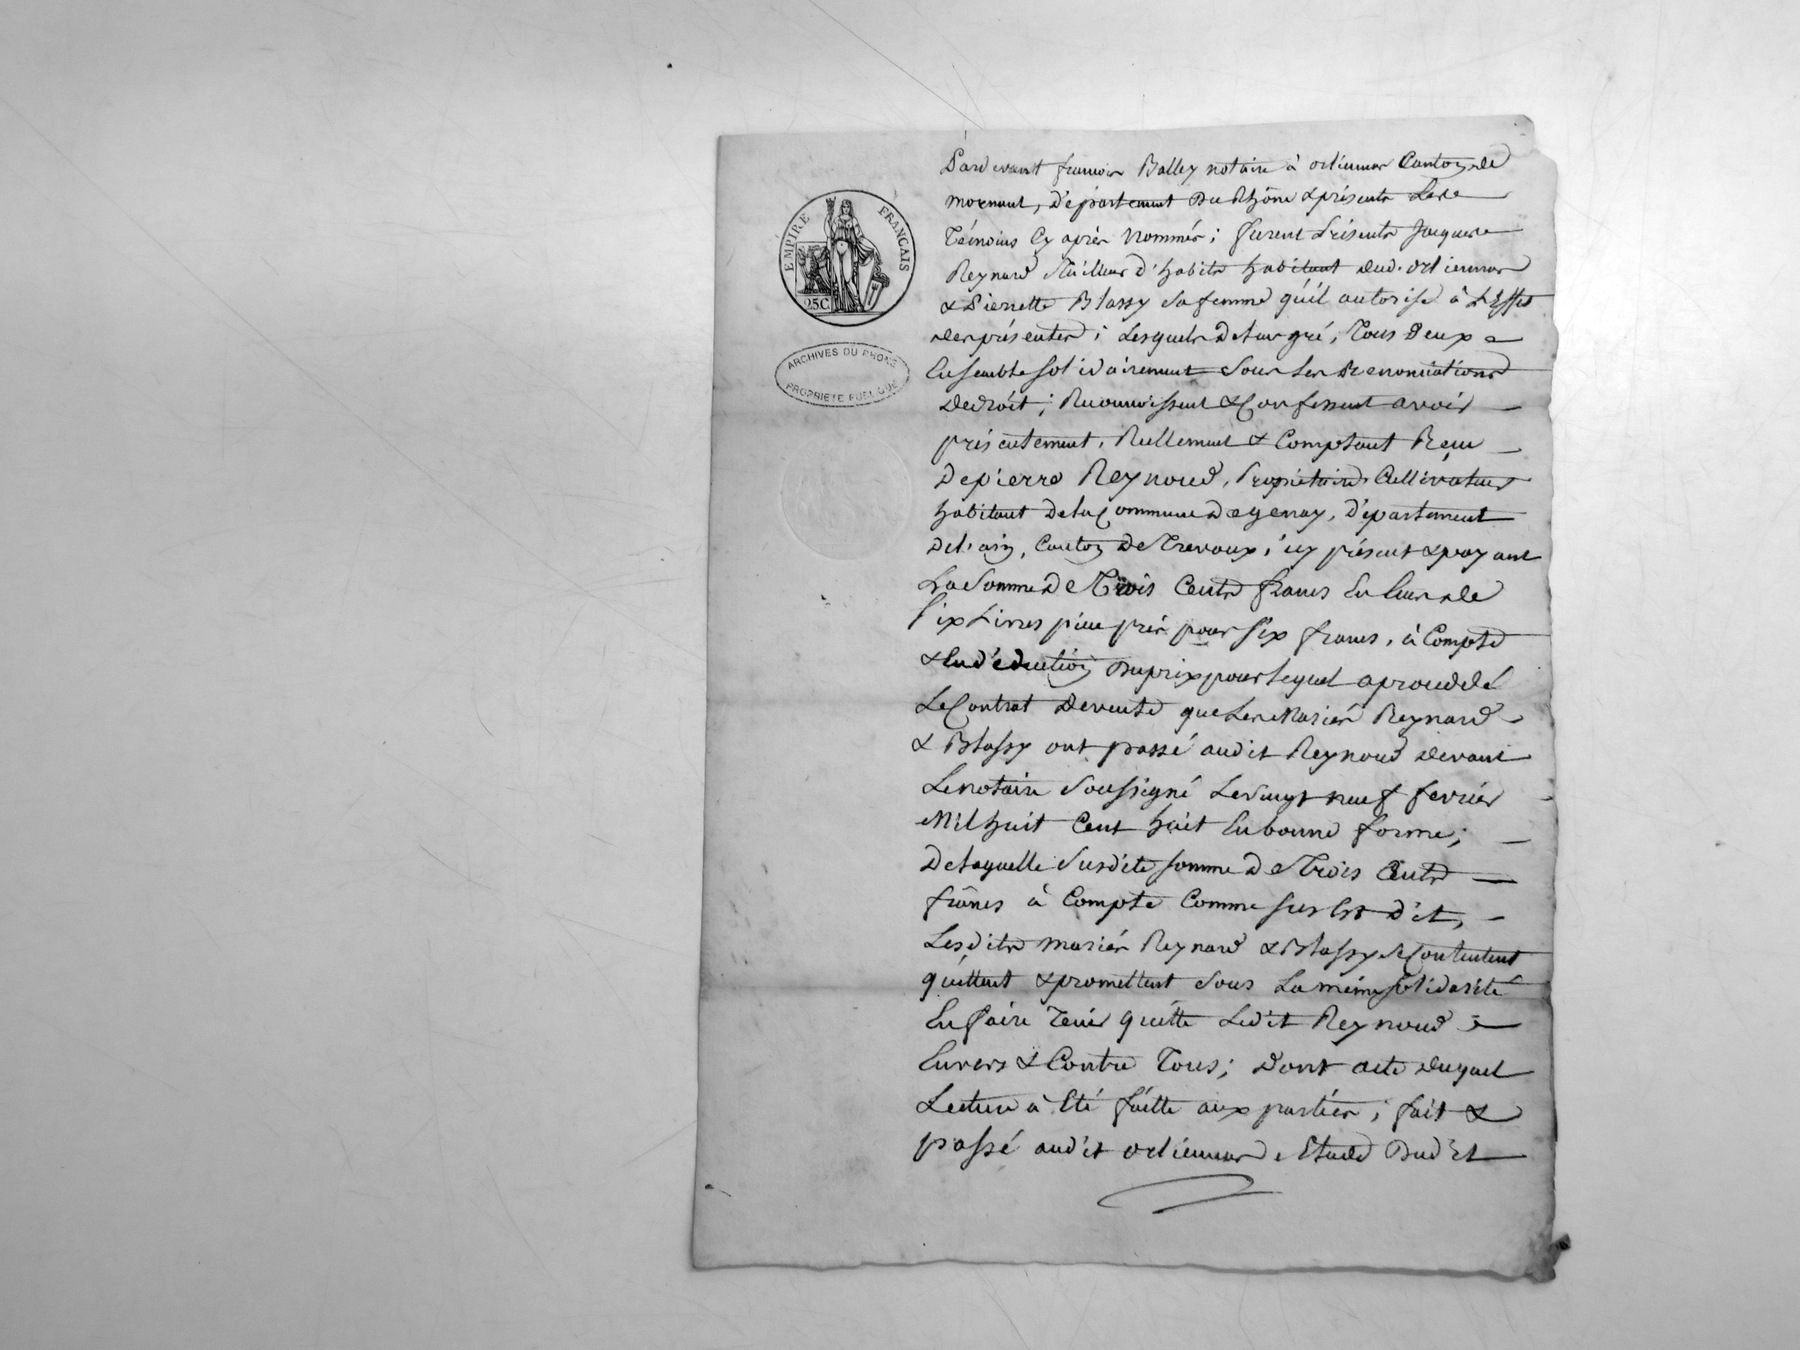 EMPIRE FRANÇAIS
25C
ARCHIVES DU RHONE
PROPRIETE PUBLIQUE
Pardevant françois Balley notaire à orliennas Canton de
mornant, département Du Rhône & présents Les
Témoins Cy après Nommés ; furent Présents Jacques
Reynard Tailleur d'habits habitant dud. orliennas
& Pierrette Blassy sa femme qu'il autorise à L'Effet
des présentes ; Lesquels de Leur gré, Tous Deux
Ensemble solidairement sous Les Renonciations
De droit ; Reconnoissent & Confessent avoir
présentement, Réellement & Comptant Reçu
De pierre Reynoud, Propriétaire Cultivateur
habitant De la Commune De genay, Département
De l'ain, Canton De Trevoux, icy présent & payant
La Somme De Trois Cents francs En Ecus de
Six Livres pièce pris pour six francs, à Compte
& En déduction Du prix pour lequel a procédé
Le Contrat De vente que Les Mariés Reynard
& Blassy ont passé audit Reynoud Devant
Le notaire Soussigné Le vingt neuf fevrier
Mil huit Cent huit En bonne forme ;
De laquelle Susdite somme De Trois Cents
francs à Compte Comme sus Est Dit,
Lesdits mariés Reynard & Blassy se Contentent
quittent & promettent Sous La même solidarité
En faire Tenir quitte Ledit Reynoud
Envers & Contre Tous ; Dont acte Duquel
Lecture à Eté faitte aux parties ; fait &
passé audit orliennas Etude Dudit